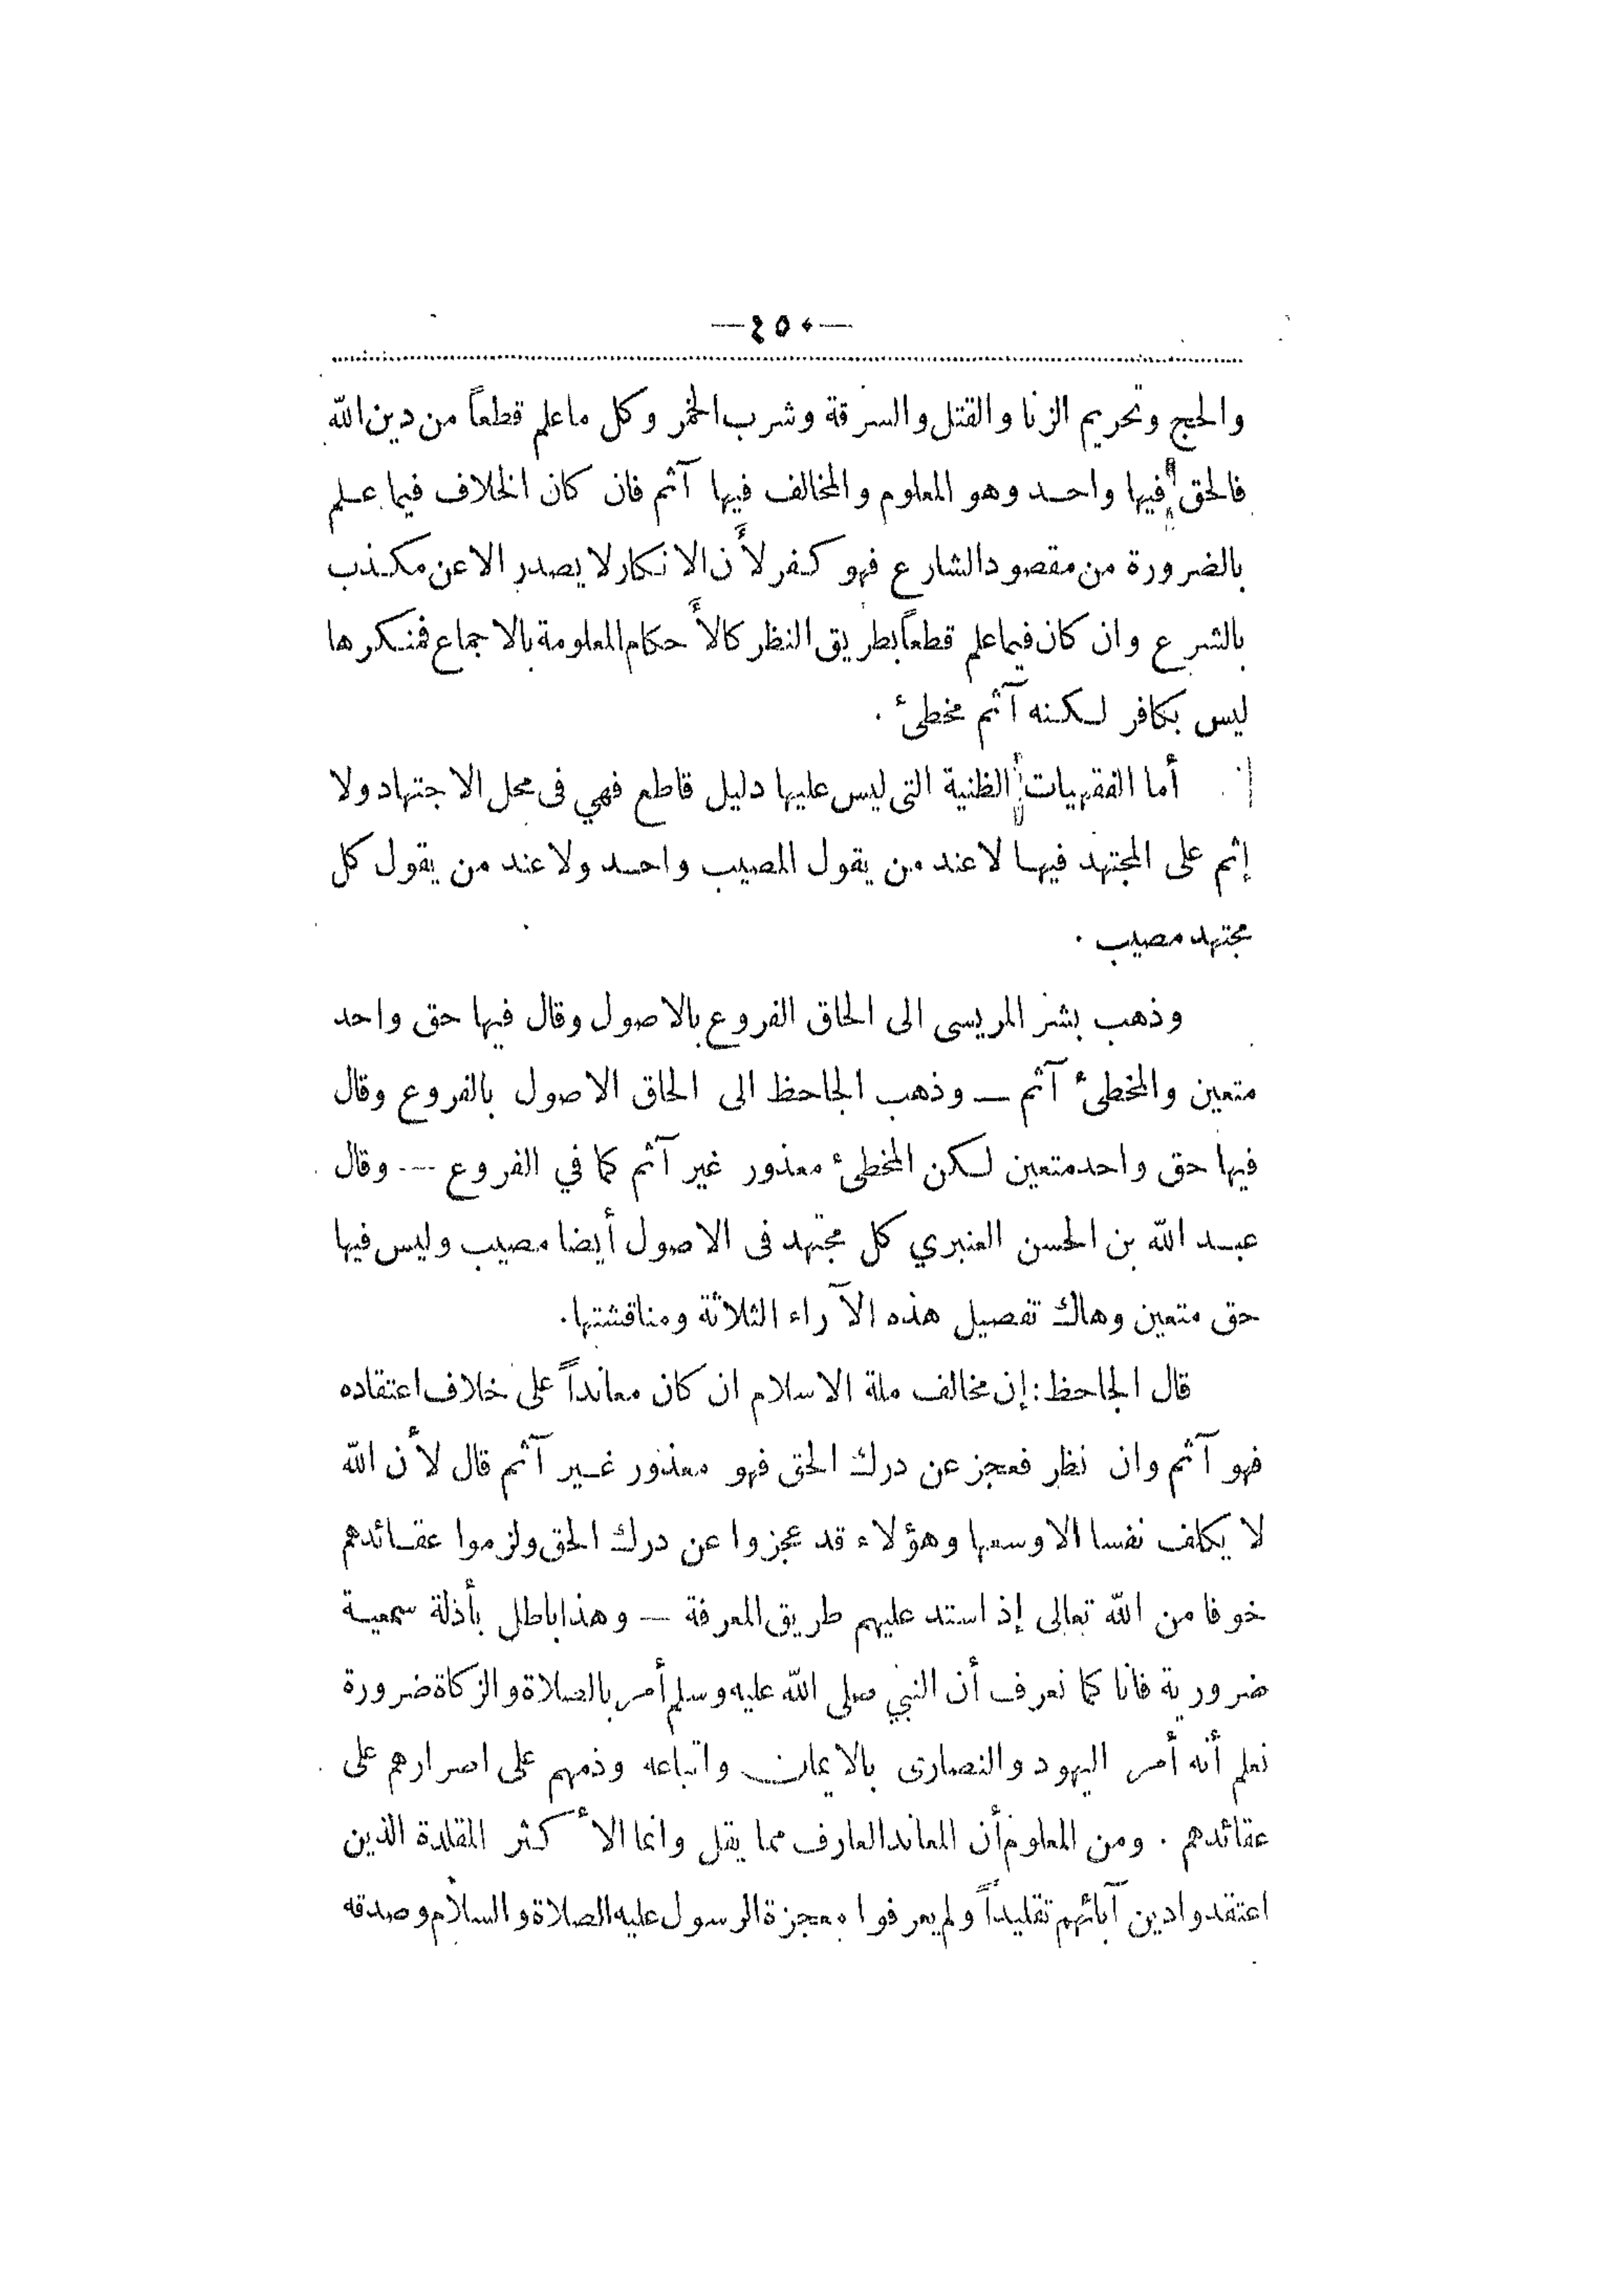 —٤٥٠—
والحج وتحريم الزنا والقتل والسرقة وشرب الخمر وكل ما علم قطعاً من دين الله
فالحق فيها واحد وهو المعلوم والمخالف فيها آثم فان كان الخلاف فيما علم
بالضرورة من مقصود الشارع فهو كفر لأن الانكار لا يصدر الا عن مكذب
بالشرع وان كان فيما علم قطعاً بطريق النظر كالأحكام المعلومة بالاجماع فمنكرها
ليس بكافر لكنه آثم مخطئ .
أما الفقهيات الظنية التى ليس عليها دليل قاطع فهي فى محل الاجتهاد ولا
إثم على المجتهد فيها لا عند من يقول المصيب واحد ولا عند من يقول كل
مجتهد مصيب .
وذهب بشر المريسى الى الحاق الفروع بالاصول وقال فيها حق واحد
متعين والمخطئ آثم — وذهب الجاحظ الى الحاق الاصول بالفروع وقال
فيها حق واحد متعين لكن المخطئ معذور غير آثم كما في الفروع — وقال
عبد الله بن الحسن العنبري كل مجتهد فى الاصول أيضا مصيب وليس فيها
حق متعين وهاك تفصيل هذه الآراء الثلاثة ومناقشتها.
قال الجاحظ : إن مخالف ملة الاسلام ان كان معانداً على خلاف اعتقاده
فهو آثم وان نظر فعجز عن درك الحق فهو معذور غير آثم قال لأن الله
لا يكلف نفسا الا وسعها وهؤلاء قد عجزوا عن درك الحق ولزموا عقائدهم
خوفا من الله تعالى إذ استد عليهم طريق المعرفة — وهذا باطل بأدلة سمعية
ضرورية فانا كما نعرف أن النبي صلى الله عليه وسلم أمر بالصلاة والزكاة ضرورة
نعلم أنه أمر اليهود والنصارى بالايمان واتباعه وذمهم على اصرارهم على
عقائدهم . ومن المعلوم أن المعاند العارف مما يقل وانما الأكثر المقلدة الذين
اعتقدوا دين آبائهم تقليداً ولم يعرفوا معجزة الرسول عليه الصلاة والسلام وصدقه